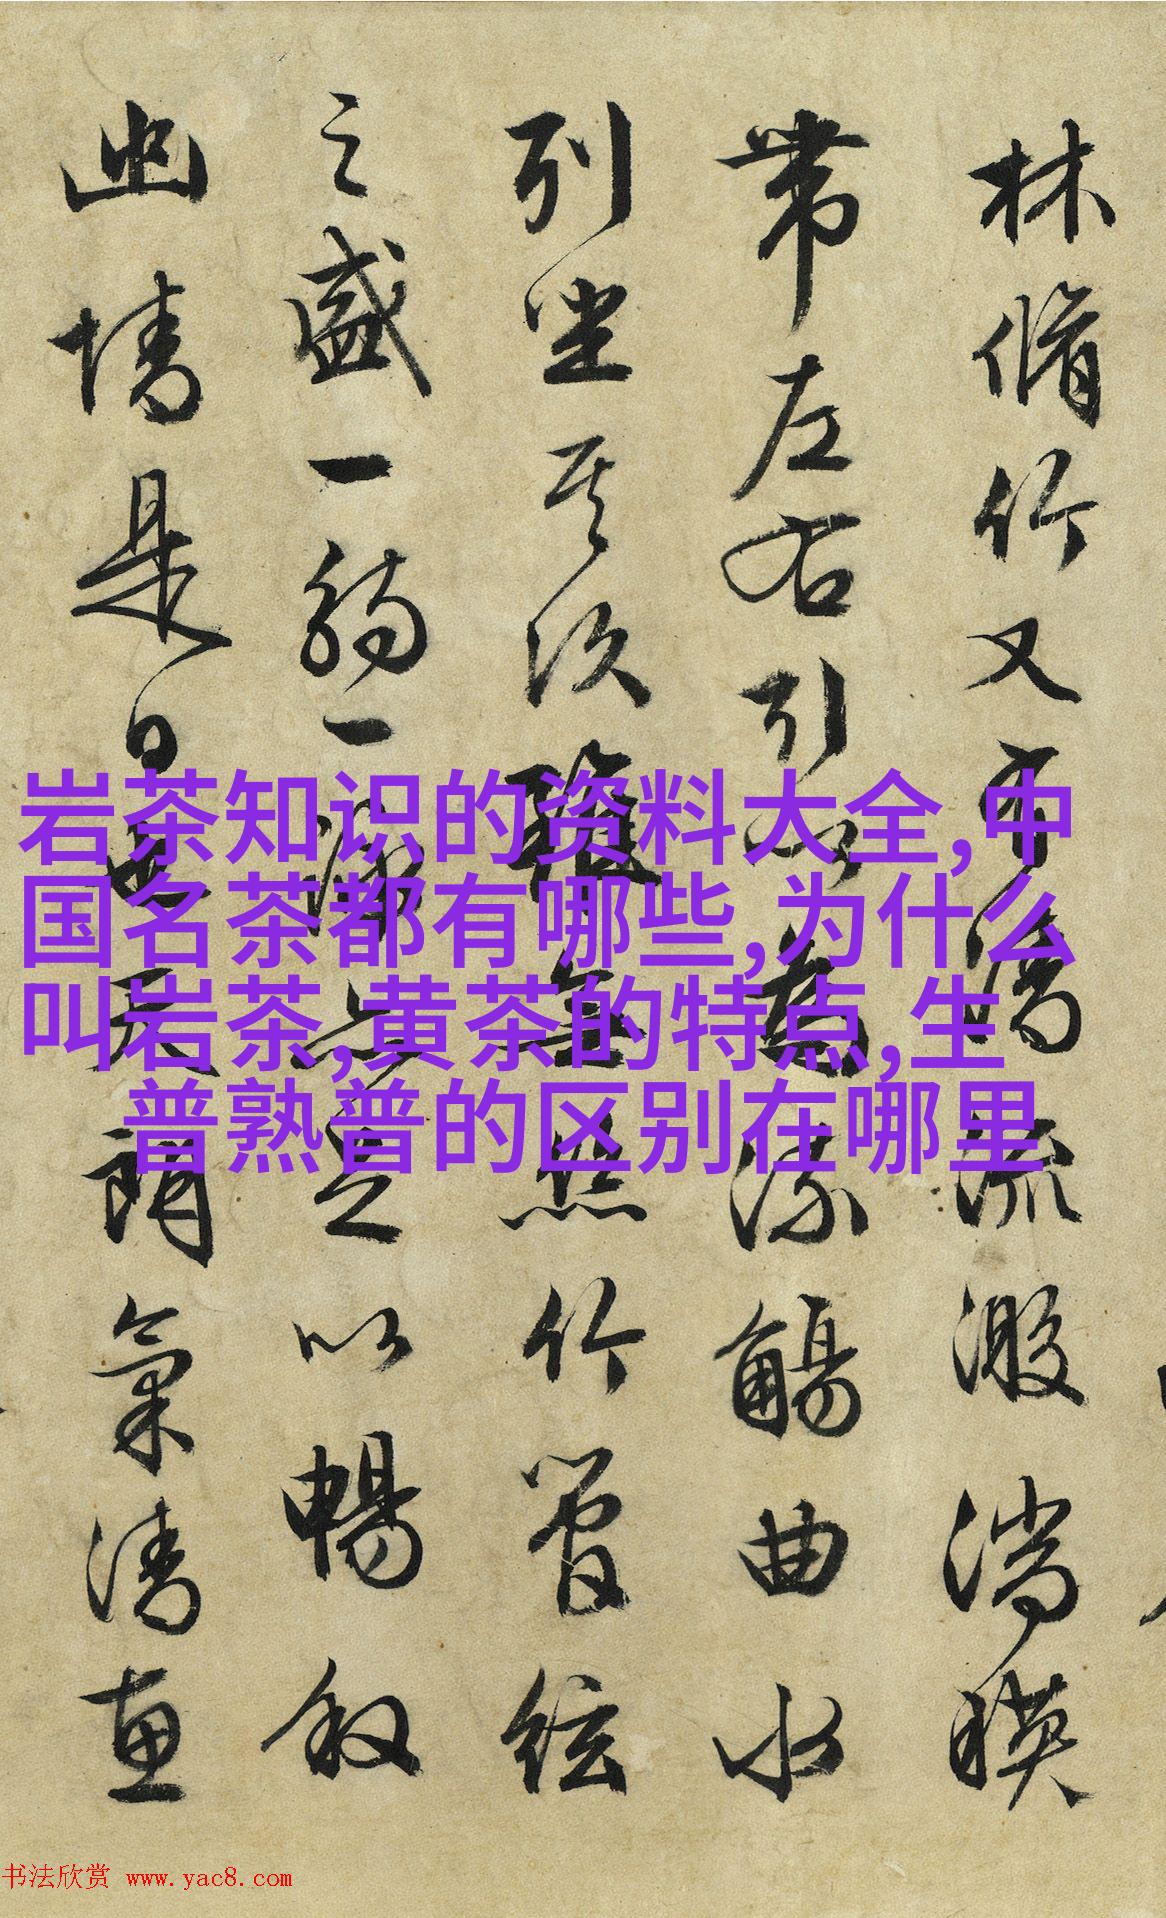 林脩竹又有清流激湍暎
帶左右引以為流觴曲水
列坐其次雖無絲竹管絃
之盛一觴一詠亦足以暢叙
幽情是日也天朗氣清惠
岩茶知识的资料大全,中
国名茶都有哪些,为什么
叫岩茶,黄茶的特点,生
普熟普的区别在哪里
书法欣赏 www.yac8.com